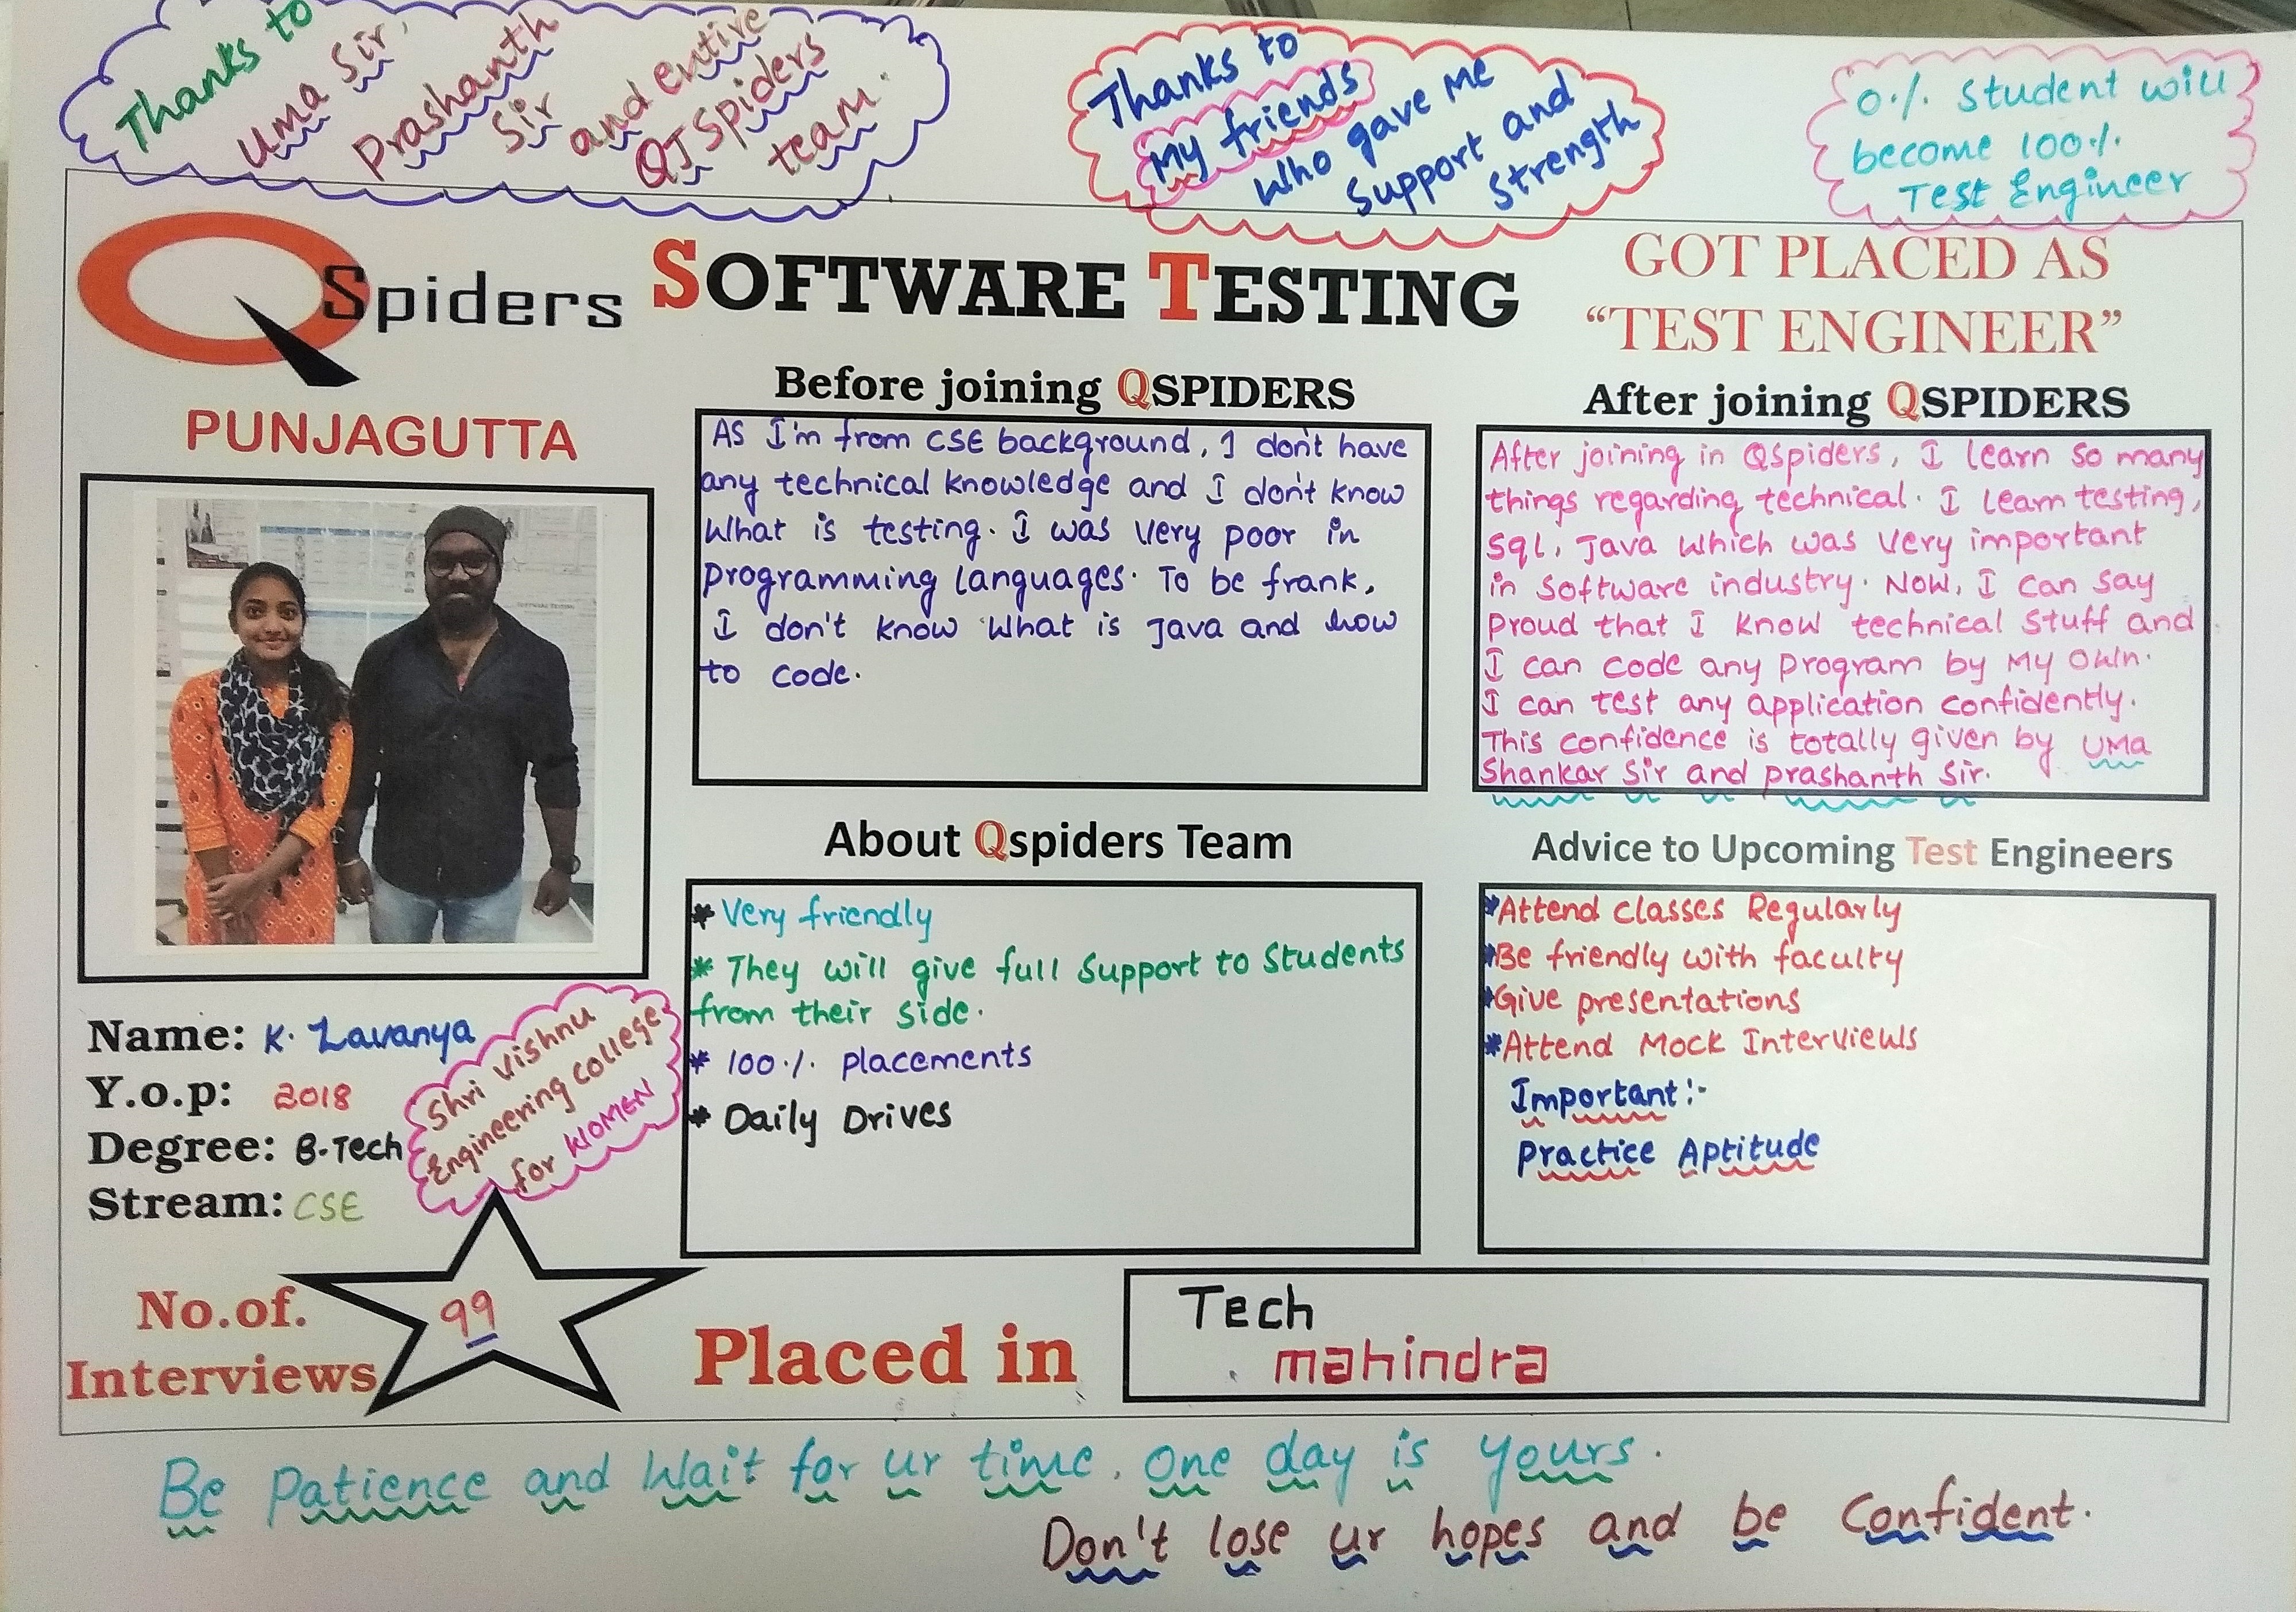 Thanks to
Uma Sir,
Prashanth
Sir
and entire
QJ Spiders
team.
Thanks to
My friends
Who gave me
Support and
Strength
0% Student will
become 100%
Test Engineer
QSpiders
PUNJAGUTTA
SOFTWARE TESTING
GOT PLACED AS
“TEST ENGINEER”
Before joining QSPIDERS
As I'm from CSE background, I don't have
any technical knowledge and I don't know
What is testing. I was very poor in
programming languages. To be frank,
I don't know what is Java and how
to code.
After joining QSPIDERS
After joining in Qspiders, I learn so many
things regarding technical. I learn testing,
Sql, Java which was very important
in Software industry. Now, I can say
proud that I know technical stuff and
I can code any program by my own.
I can test any application confidently.
This confidence is totally given by Uma
Shankar Sir and prashanth Sir.
About Qspiders Team
* Very friendly
* They will give full Support to Students
from their side.
* 100% placements
* Daily Drives
Advice to Upcoming Test Engineers
*Attend classes Regularly
*Be friendly with faculty
*Give presentations
*Attend Mock Interviews
Important:-
Practice Aptitude
Name: K. Lavanya
Y.o.p: 2018
Degree: B-Tech
Stream: CSE
Shri Vishnu
Engineering college
for WOMEN
No.of.
Interviews
99
Placed in
Tech
mahindra
Be Patience and Wait for ur time. One day is yours.
Don't lose ur hopes and be Confident.